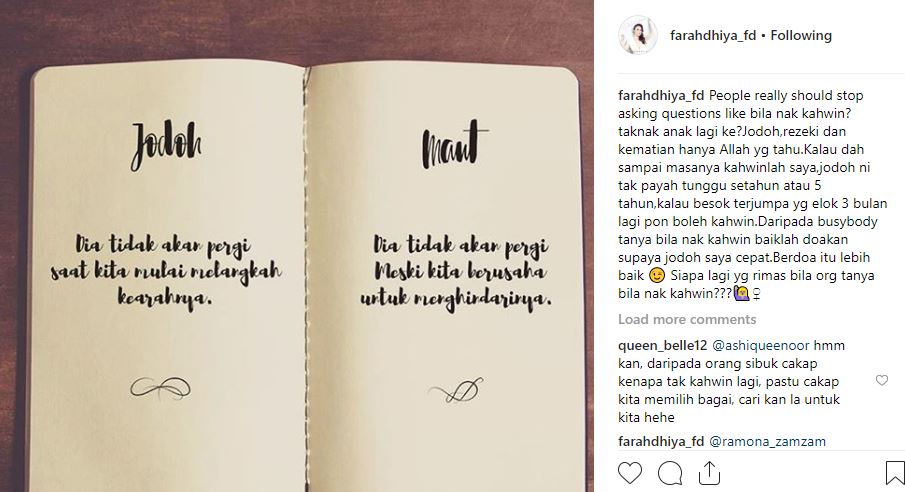 Jodoh
Dia tidak akan pergi
saat kita mulai melangkah
kearahnya.
Maut
Dia tidak akan pergi
Meski kita berusaha
untuk menghindarinya.
farahdhiya_fd • Following
farahdhiya_fd People really should stop
asking questions like bila nak kahwin?
taknak anak lagi ke?Jodoh,rezeki dan
kematian hanya Allah yg tahu.Kalau dah
sampai masanya kahwinlah saya,jodoh ni
tak payah tunggu setahun atau 5
tahun,kalau besok terjumpa yg elok 3 bulan
lagi pon boleh kahwin.Daripada busybody
tanya bila nak kahwin baiklah doakan
supaya jodoh saya cepat.Berdoa itu lebih
baik 😉 Siapa lagi yg rimas bila org tanya
bila nak kahwin???🙋♀
Load more comments
queen_belle12 @ashiqueenoor hmm
kan, daripada orang sibuk cakap
kenapa tak kahwin lagi, pastu cakap
kita memilih bagai, cari kan la untuk
kita hehe
farahdhiya_fd @ramona_zamzam